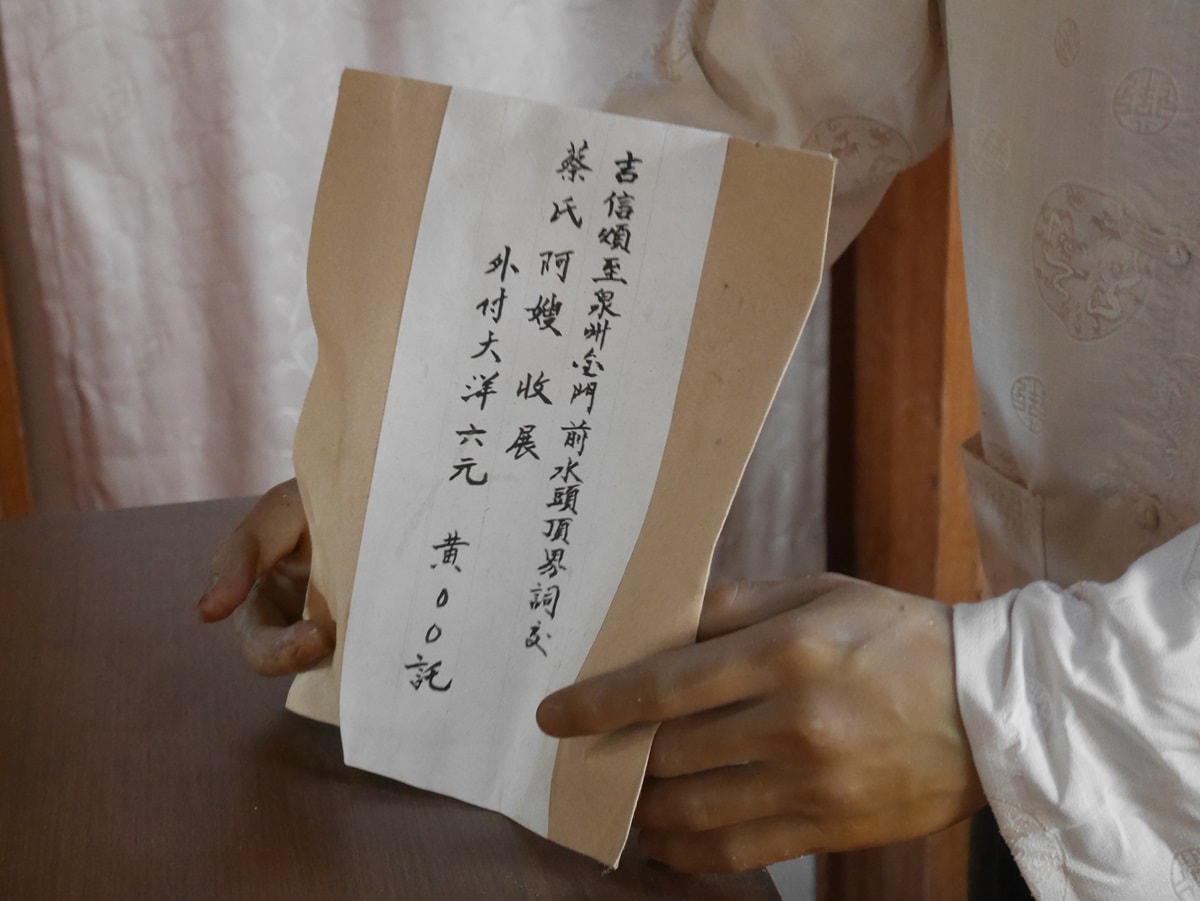 吉信頌至泉州金門前水頭頂界詞交
蔡氏阿嫂收展
外付大洋六元 黃００託